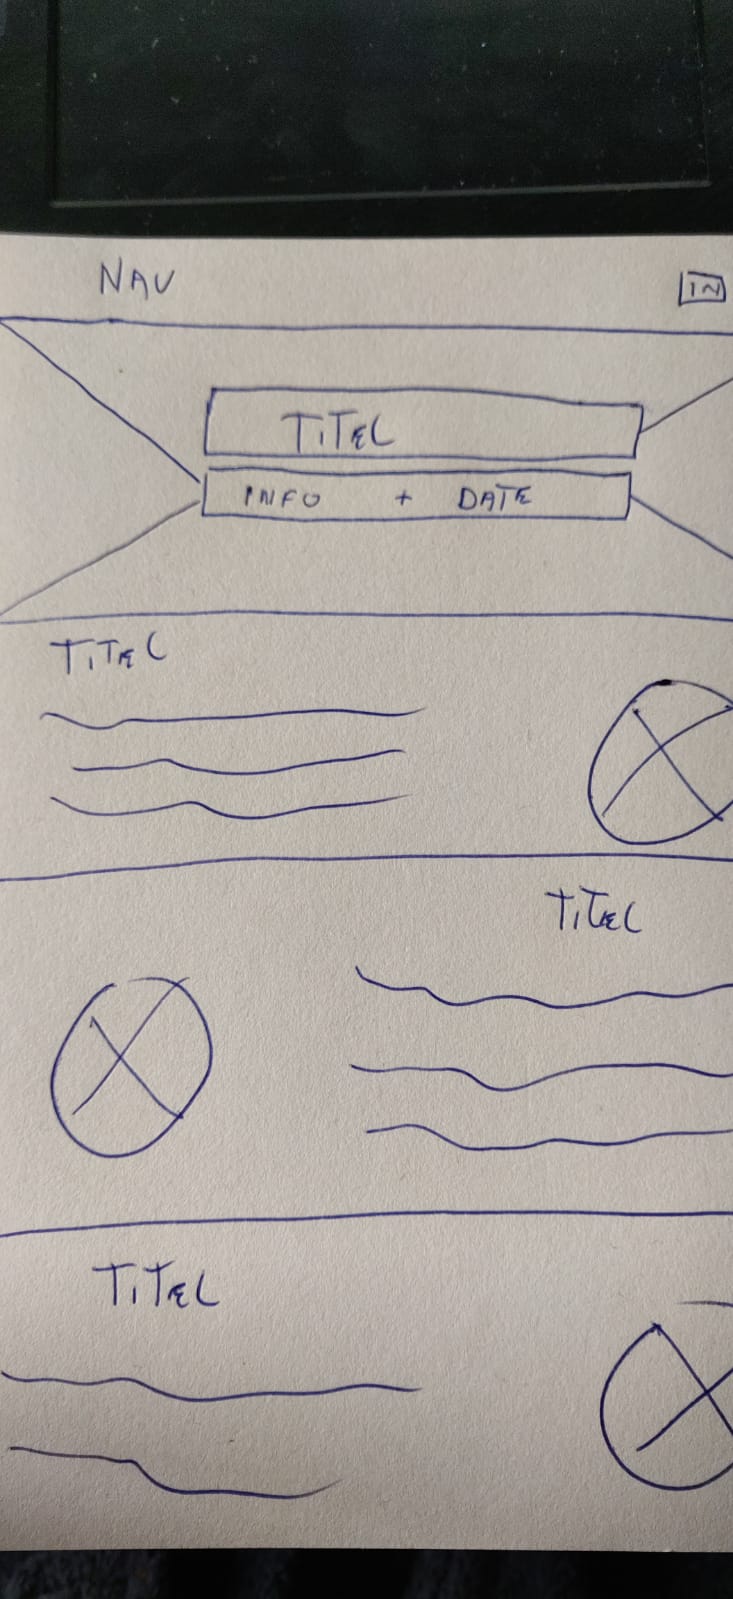 NAV IN
TiTEL
INFO + DATE
TiTEL
TiTEL
TiTEL